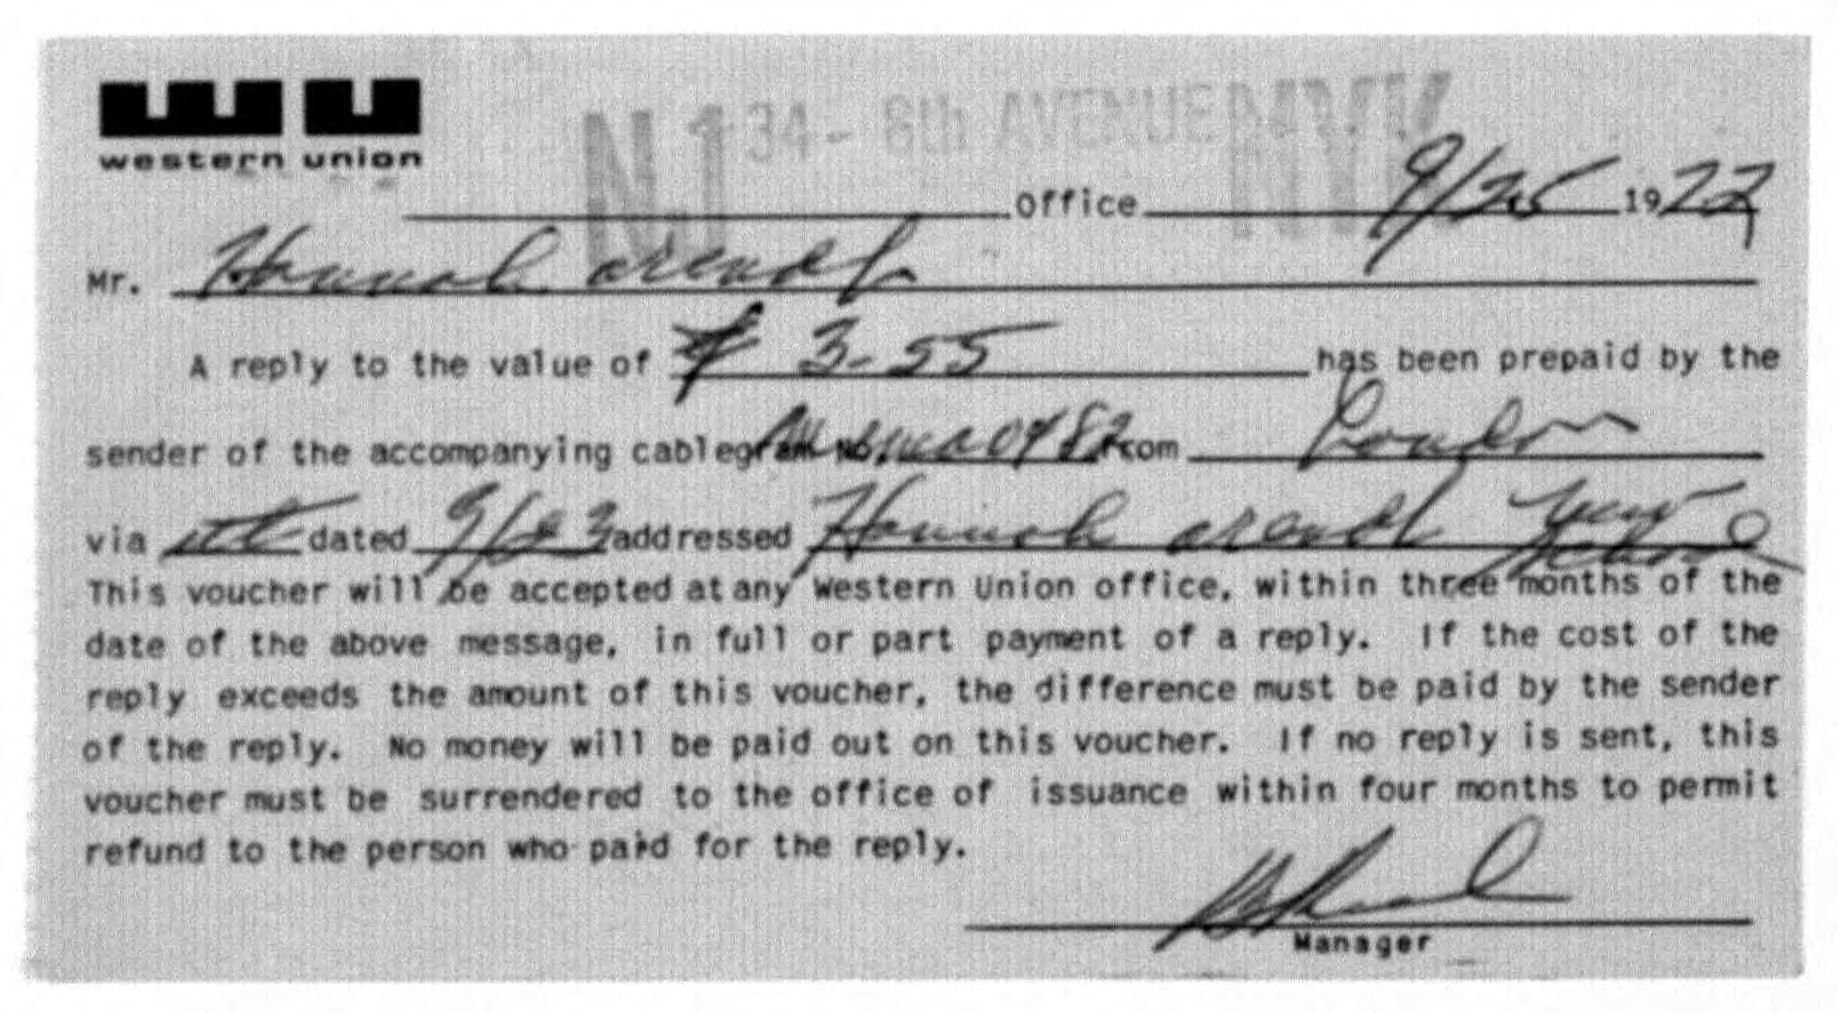 WU
western union
N.J 34 - 6th AVENUE NYK
Office 9/25 1972
Mr. Hannah arendt
A reply to the value of $ 3-55 has been prepaid by the
sender of the accompanying cablegram No. from London
via itt dated 9/23 addressed Hannah arendt New
This voucher will be accepted at any Western Union office, within three months of the
date of the above message, in full or part payment of a reply. If the cost of the
reply exceeds the amount of this voucher, the difference must be paid by the sender
of the reply. No money will be paid out on this voucher. If no reply is sent, this
voucher must be surrendered to the office of issuance within four months to permit
refund to the person who paid for the reply.
Manager